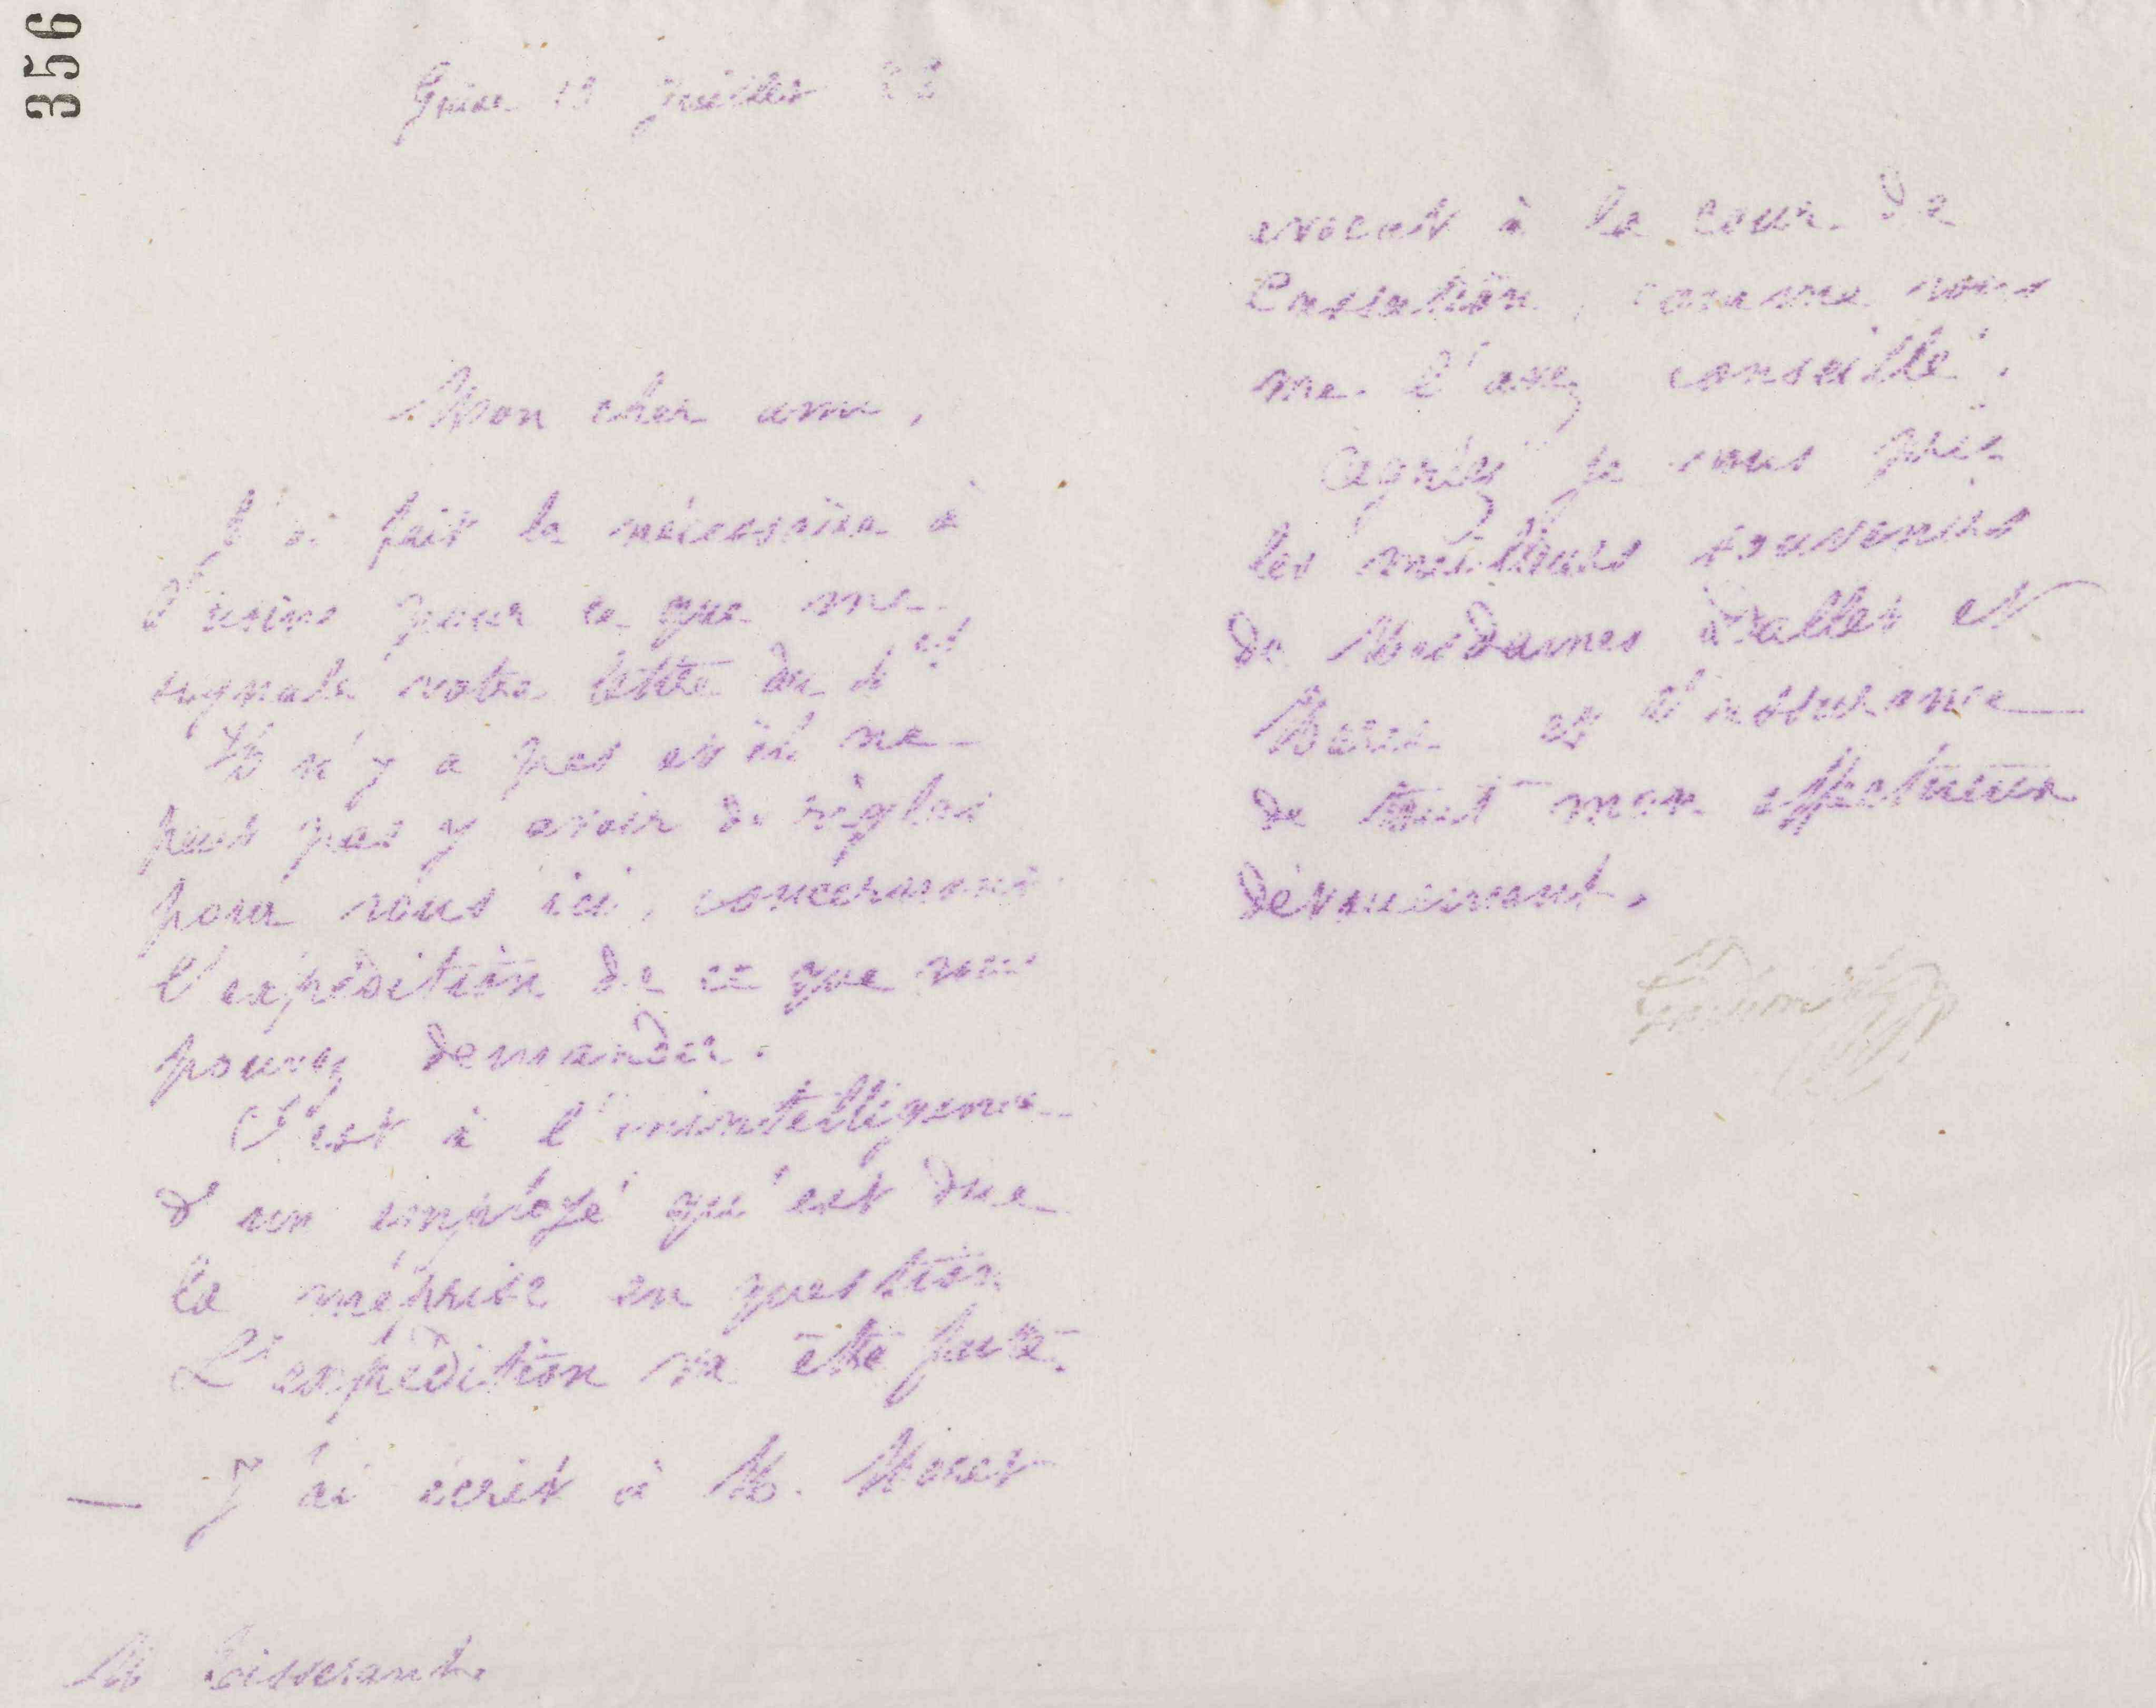 356
Guise 19 juillet 82
Mon cher ami,
J'ai fait le nécessaire à
l'usine pour ce que me
signale votre lettre du
Il n'y a pas et il ne
peut pas y avoir de règles
pour nous ici, concernant
l'expédition de ce que vous
pouvez demander.
C'est à l'inintelligence
d'un employé qu'est due
la méprise en question
L'expédition va être faite.
— J'ai écrit à M. Moret
avocat à la cour de
Cassation, comme vous
me l'avez conseillé.
Agréez je vous prie
les meilleurs souvenirs
de Mesdames Dallet et
Marie et l'assurance
de tout mon affectueux
dévouement.
M Tisserant.